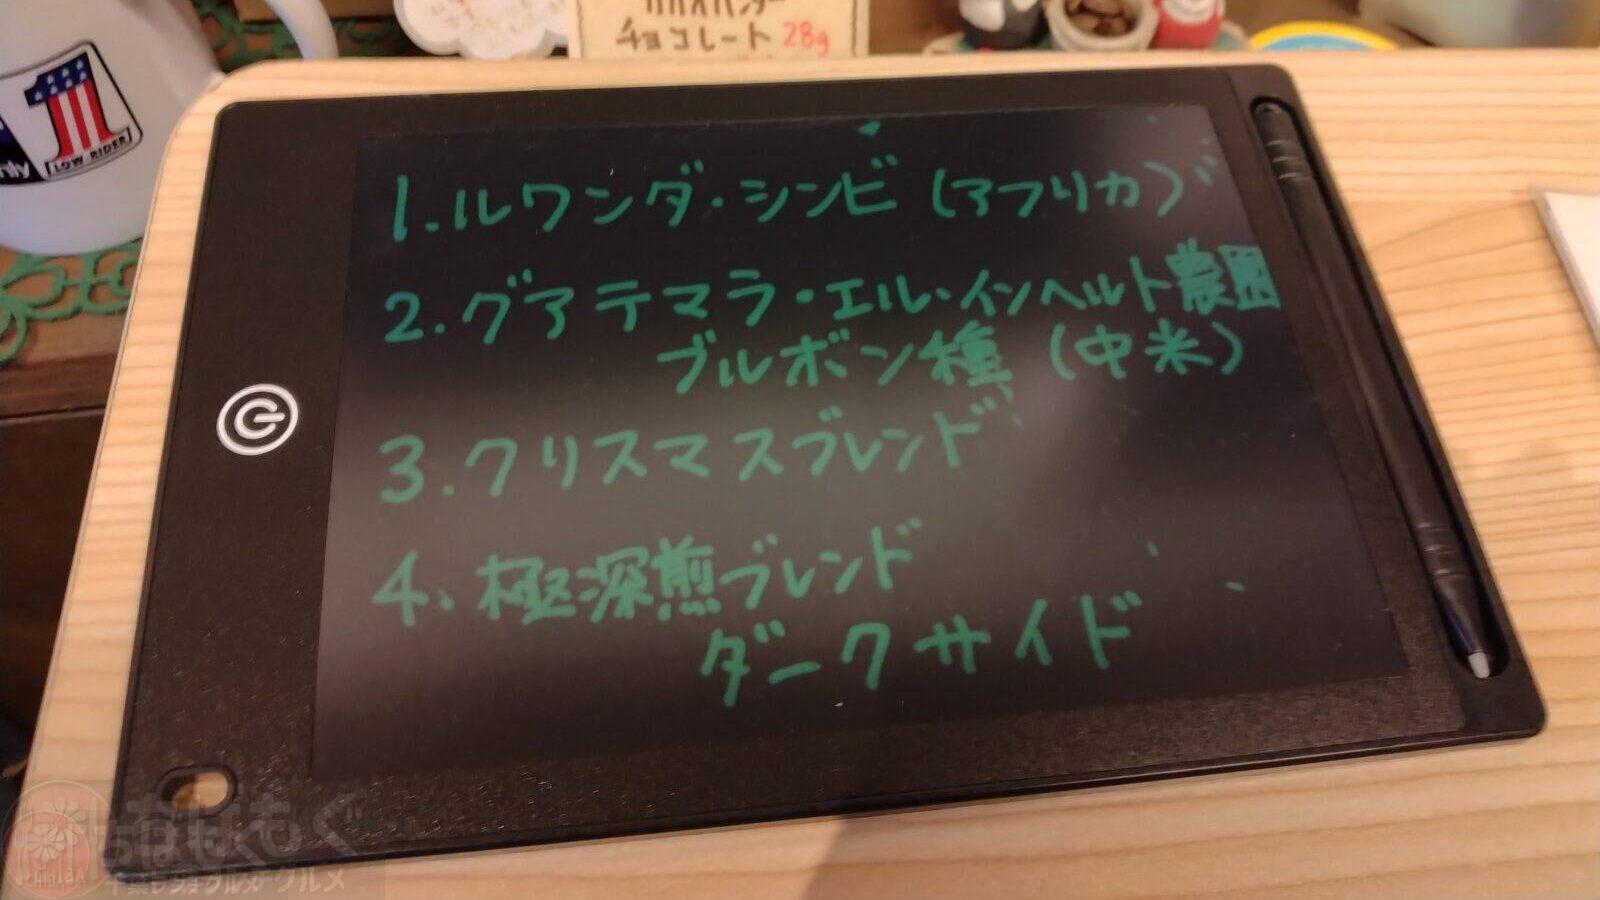 カカオハンター
チョコレート 28g
nly
1
LOW RIDER
1.ルワンダ・シンビ(アフリカ)
2.グアテマラ・エル・インヘルト農園
ブルボン種(中米)
3.クリスマスブレンド
4、極深煎ブレンド
ダークサイド
ちばもぐもぐ